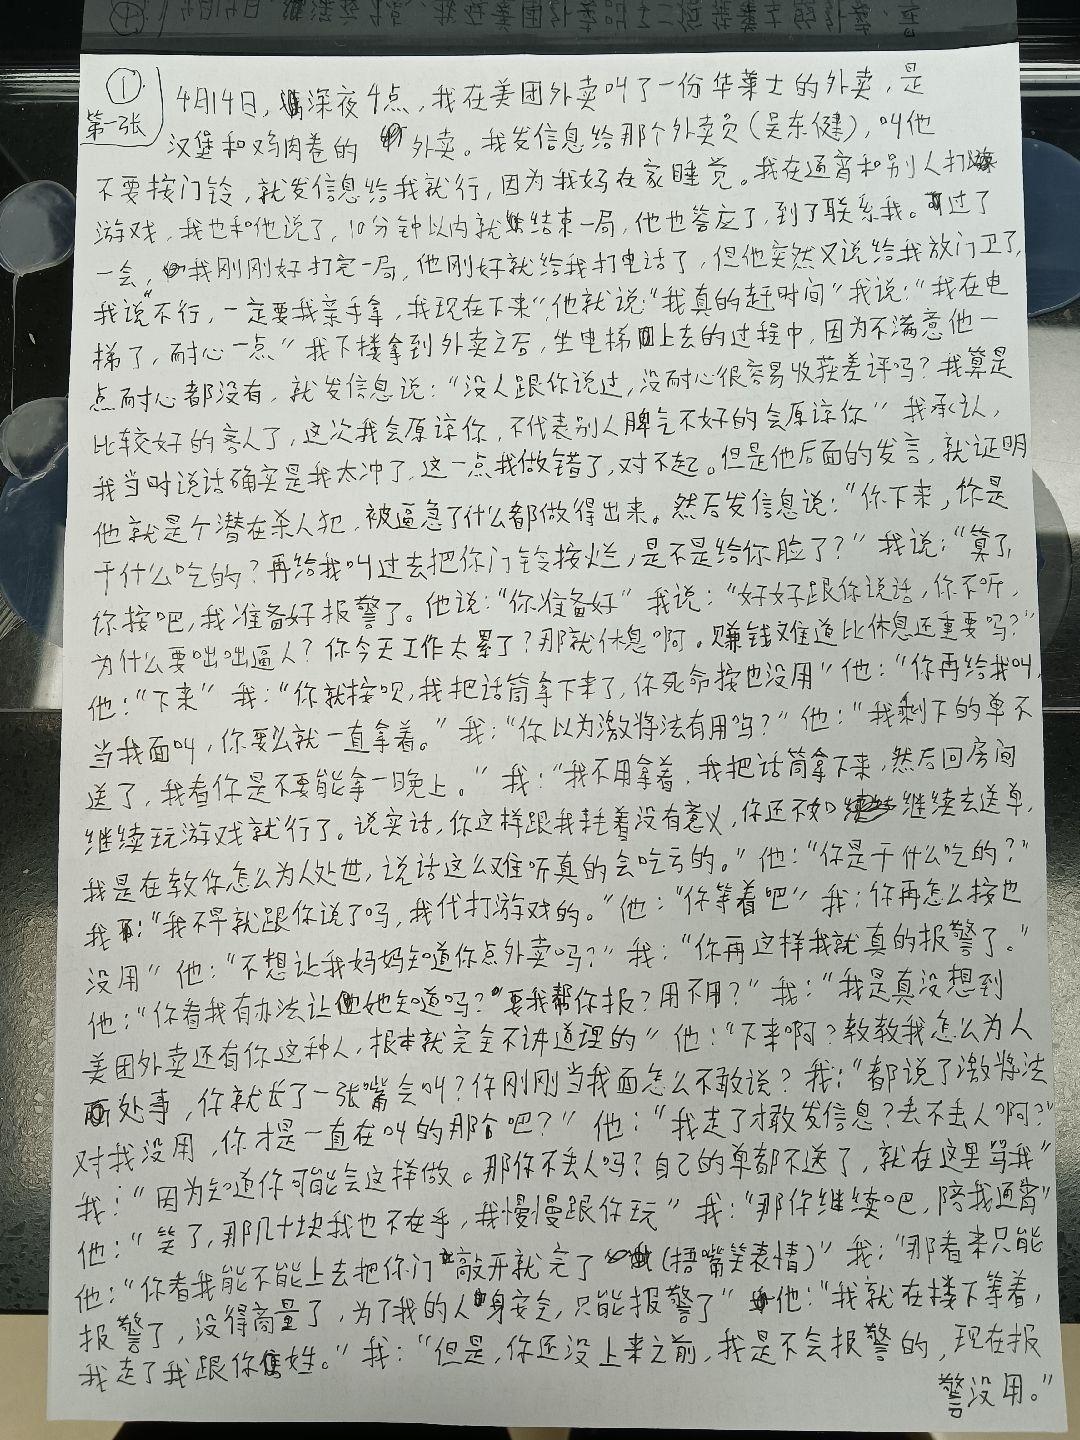 ①
第一张
4月14日，深夜4点，我在美团外卖叫了一份华莱士的外卖，是
汉堡和鸡肉卷的 外卖。我发信息给那个外卖员（吴东健），叫他
不要按门铃，就发信息给我就行，因为我妈在家睡觉。我在通宵和别人打
游戏，我也和他说了，10分钟以内就结束一局，他也答应了，到了联系我。过了
一会，我刚刚好打完一局，他刚好就给我打电话了，但他突然又说给我放门卫了，
我说“不行，一定要我亲手拿，我现在下来”他就说：“我真的赶时间”我说：“我在电
梯了，耐心一点”我下楼拿到外卖之后，坐电梯上去的过程中，因为不满意他一
点耐心都没有，就发信息说：“没人跟你说过，没耐心很容易收获差评吗？我算是
比较好的客人了，这次我会原谅你，不代表别人脾气不好的会原谅你”我承认，
我当时说话确实是我太冲了，这一点我做错了，对不起。但是他后面的发言，就证明
他就是个潜在杀人犯，被逼急了什么都做得出来。然后发信息说：“你下来，你是
干什么吃的？再给我叫过去把你门铃按烂，是不是给你脸了？”我说：“算了，
你按吧，我准备好报警了。他说：“你准备好”我说：“好好跟你说话，你不听，
为什么要咄咄逼人？你今天工作太累了？那就休息啊。赚钱难道比休息还重要吗？”
他：“下来”我：“你就按呗，我把话筒拿下来了，你死命按也没用”他：“你再给我叫，
当我面叫，你要么就一直拿着。”我：“你以为激将法有用吗？”他：“我剩下的单不
送了，我看你是不要能拿一晚上。”我：“我不用拿着，我把话筒拿下来，然后回房间
继续玩游戏就行了。说实话，你这样跟我耗着没有意义，你还不如继续去送单，
我是在教你怎么为人处世，说话这么难听真的会吃亏的。”他：“你是干什么吃的？”
我：“我不早就跟你说了吗，我代打游戏的。”他：“你等着吧”我：你再怎么按也
没用”他：“不想让我妈妈知道你点外卖吗？”我：“你再这样我就真的报警了。”
他：“你看我有办法让她知道吗？要我帮你报？用不用？”我：“我是真没想到
美团外卖还有你这种人，根本就完全不讲道理的”他：“下来啊？教教我怎么为人
处事，你就长了一张嘴会叫？你刚刚当我面怎么不敢说？我：“都说了激将法
对我没用，你才是一直在叫的那个吧？”他：“我走了才敢发信息？丢不丢人啊？”
我：“因为知道你可能会这样做。那你不丢人吗？自己的单都不送了，就在这里骂我”
他：“笑了，那几十块我也不在乎，我慢慢跟你玩”我：“那你继续吧，陪我通宵”
他：“你看我能不能上去把你门敲开就完了（捂嘴笑表情）”我：“那看来只能
报警了，没得商量了，为了我的人身安全，只能报警了”他：“我就在楼下等着，
我走了我跟你姓。”我：“但是，你还没上来之前，我是不会报警的，现在报
警没用。”